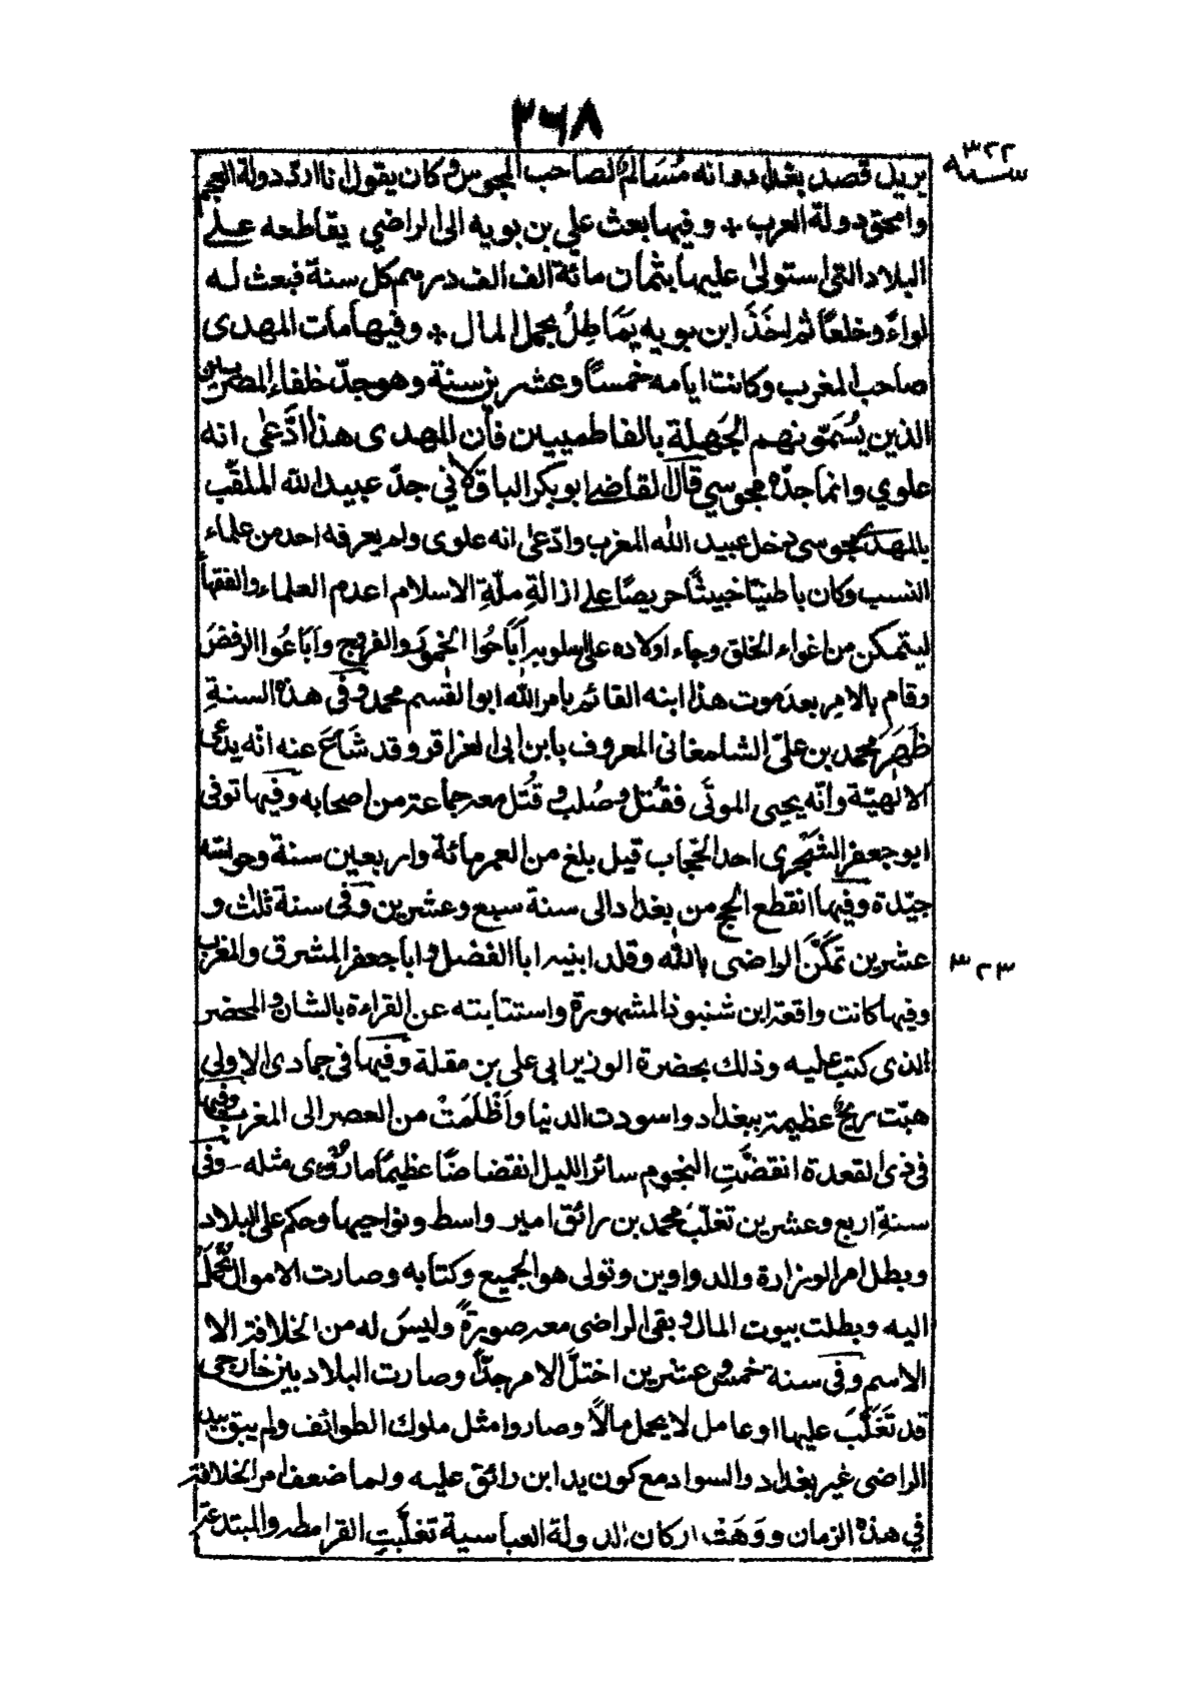 ٢٦٨
سنة ٣٢٢
يريد قصد بغداد وانه مُسَالمٌ لصاحب المجوس وكان يقول انا اردّ دولة العجم
وامحق دولة العرب * وفيها بعث علي بن بويه الى الراضي يقاطعه على
البلاد التى استولىٰ عليها بثمان مائة الف الف درهم كل سنة فبعث له
لواءً وخلعًا ثم اخَذَ ابن بويه يُمَاطِلُ بحمل المال * وفيها مات المهدى
صاحب المغرب وكانت ايامه خمسًا وعشرين سنة وهو جدّ خلفاء المصريين
الذين يُسَمّونهم الجَهلة بالفاطميين فان المهدى هذا ادَّعٰى انه
علوي وانما جدّه مجوسي قال القاضے ابو بكر الباقلاني جدّ عبيد الله الملقّب
بالمهدي مجوسي دخل عبيد الله المغرب وادّعى انه علوى ولم يعرفه احد من علماء
النسب وكان باطنيًا خبيثًا حريصًا على ازالةِ ملّةِ الاسلام اعدم العلماء والفقهاء
ليتمكن من اغواء الخلق وجاء اولاده على اسلوبه اَبَاحُوا الخمورَ والفروج واَبَاعُوا الرفضَ
وقام بالامرِ بعدَ موت هذا ابنه القائم بامر الله ابو القٰسم محمد وفى هذه السنةِ
ظَهَرَ محمد بن علىّ الشامغانى المعروف بابن ابى العزاقر وقد شَاعَ عنه انّه يدعى
الالٰهيّة وانّه يحيى الموتَى فقُتل وصُلب و قُتل معه جماعة من اصحابه وفيها توفى
ابو جعفر الشَّجَرِى احد الحُجّاب قيل بلغ من العمر مائة واربعين سنة وحواسّه
جيّدة وفيها انقطع الحج من بغداد الى سنة سبع وعشرين وفى سنة ثلث و
عشرين تمكَّنَ الراضى بالله وقلد ابنيه ابا الفضل و ابا جعفر المشرق والمغرب
٣٢٣
وفيها كانت واقعة ابن شنبوذ المشهورة واستتابته عن القراءة بالشان والمحضر
الذى كتب عليه وذلك بحضرة الوزير ابى على بن مقلة وفيها فى جمادى الاولى
هبّت ريحٌ عظيمة ببغداد واسودت الدنيا واَظْلَمَتْ من العصر الى المغرب وفيها
فى ذى القعدة انقضَّتِ النجوم سائر الليل انقضاضًا عظيمًا ما رُؤى مثله - وفى
سنةِ اربع وعشرين تغلّبَ محمد بن رائق امير واسط ونواحيها وحكم على البلاد
وبطل امر الوزارة والدواوين وتولى هو الجميع وكتابه وصارت الاموال تُحملُ
اليه وبطلت بيوت المال و بقى الراضى معه صورةً وليسَ له من الخلافة الا
الاسم وفى سنة خمس وعشرين اختلَّ الامر جدّاً وصارت البلاد بين خارجي
قد تَغَلَّبَ عليها او عامل لا يحمل مالًا وصاروا مثل ملوك الطوائف ولم يبق بيد
الراضى غير بغداد والسواد مع كون يد ابن رائق عليه ولما ضعف امر الخلافة
في هذه الزمان ووَهَتْ اركان الدولة العباسية تغلّبتِ القرامطه والمبتدعة